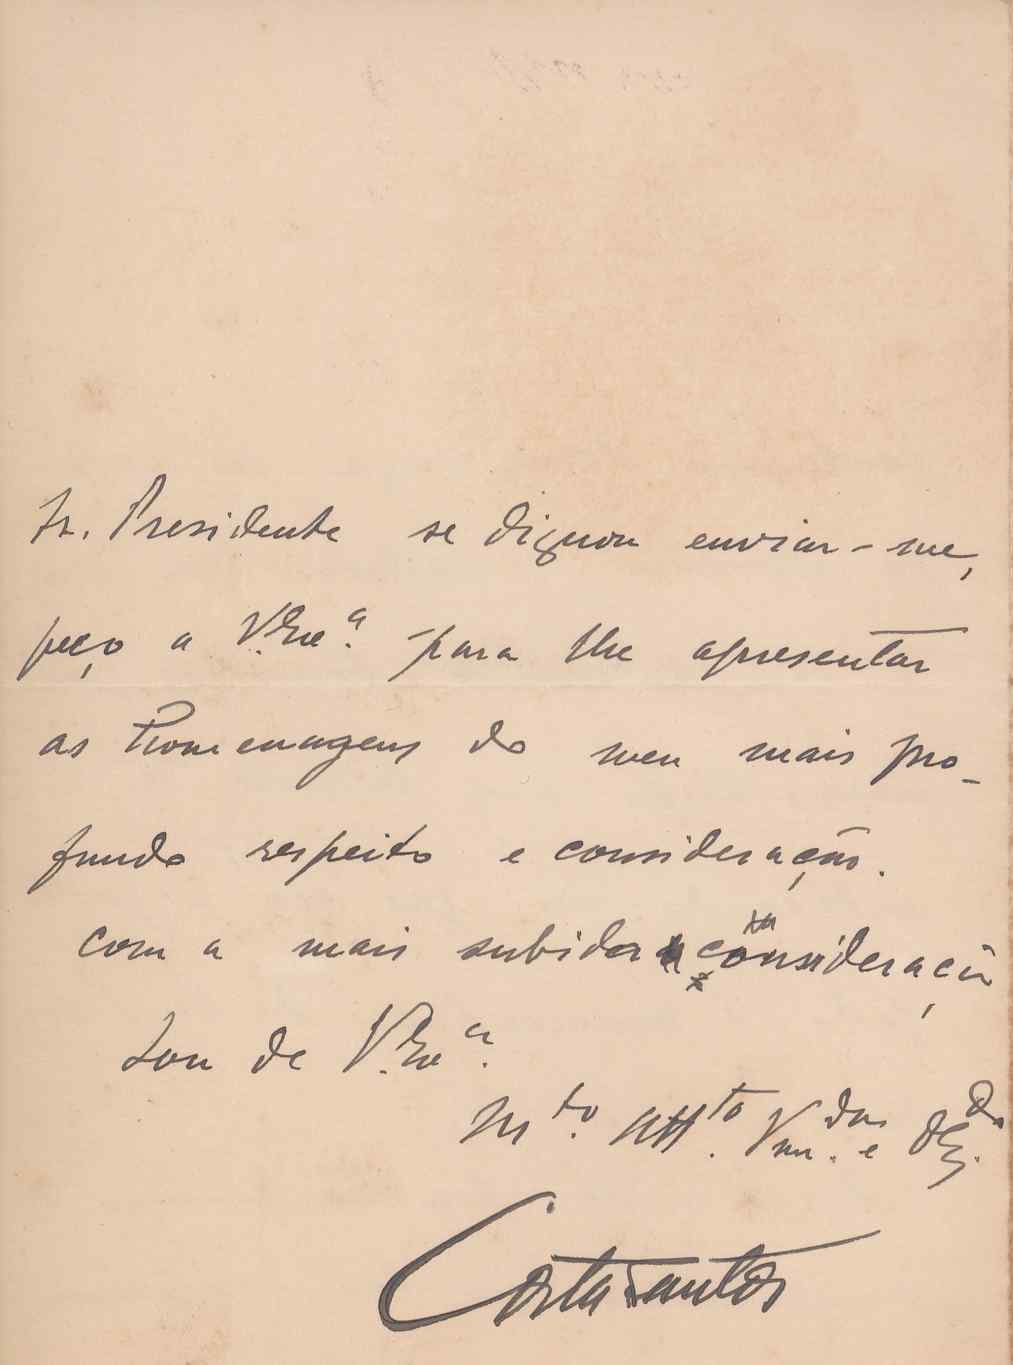 Sr. Presidente se dignou enviar-me,
peço a V. Ex.ª para lhe apresentar
as homenagens do meu mais pro-
fundo respeito e consideração.
Com a mais subida consideração
Sou de V. Ex.ª
M.to Att.to V.dor e Obg.do
Costa Santos